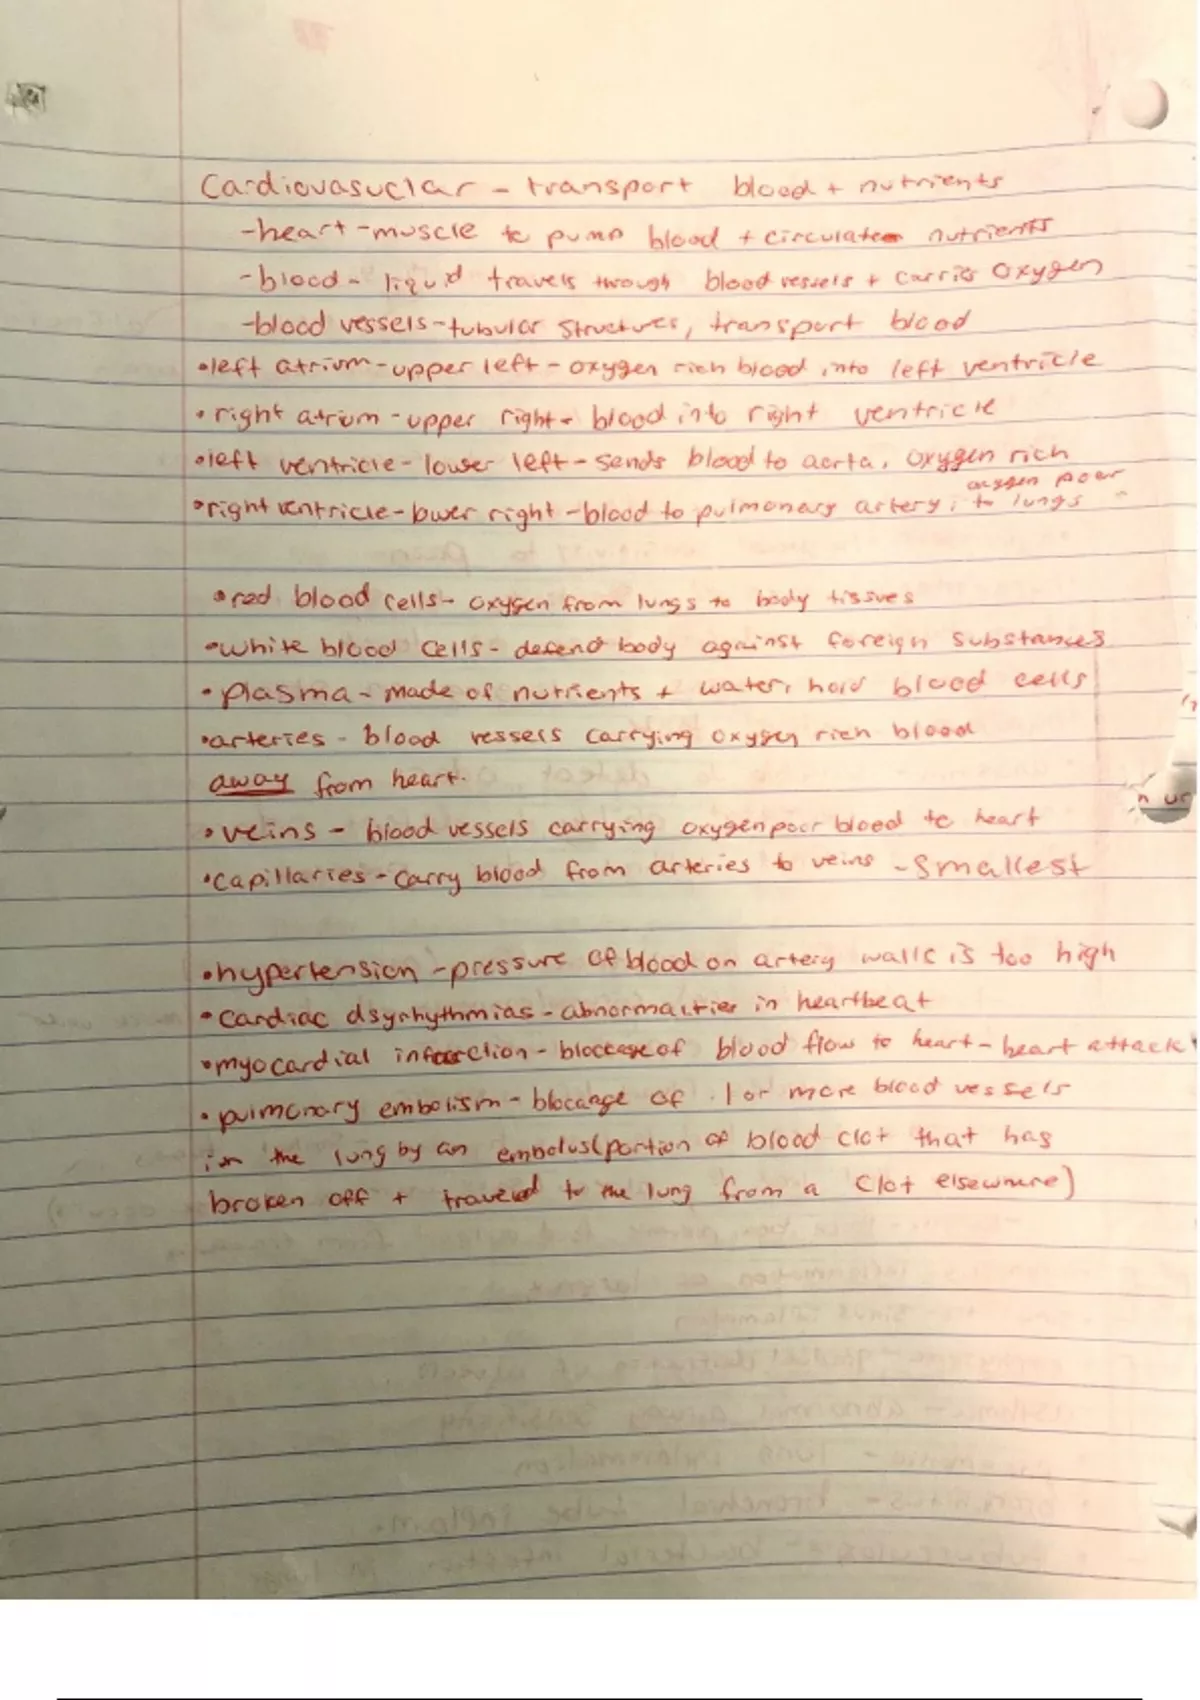 Cardiovasuclar - transport blood + nutrients
-heart-muscle to pump blood + circulate nutrients
-blood - liquid travels through blood vessels + carries oxygen
-blood vessels-tubular structures, transport blood
•left atrium-upper left - oxygen rich blood into left ventricle
•right atrium - upper right - blood into right ventricle
•left ventricle- lower left - sends blood to aorta, oxygen rich
oxygen poor
•right ventricle-lower right - blood to pulmonary artery, to lungs
•red blood cells- oxygen from lungs to body tissues
•white blood cells- defend body against foreign substances
•plasma - made of nutrients + water, hold blood cells
•arteries - blood vessels carrying oxygen rich blood
away from heart.
•veins - blood vessels carrying oxygen poor blood to heart
•capillaries - carry blood from arteries to veins - smallest
•hypertension -pressure of blood on artery walls is too high
•cardiac dsyrhythmias - abnormalties in heartbeat
•myocardial infarction - blockage of blood flow to heart - heart attack
•pulmonary embolism - blocakge of 1 or more blood vessels
in the lung by an embolus(portion of blood clot that has
broken off + traveled to the lung from a clot elsewhere)